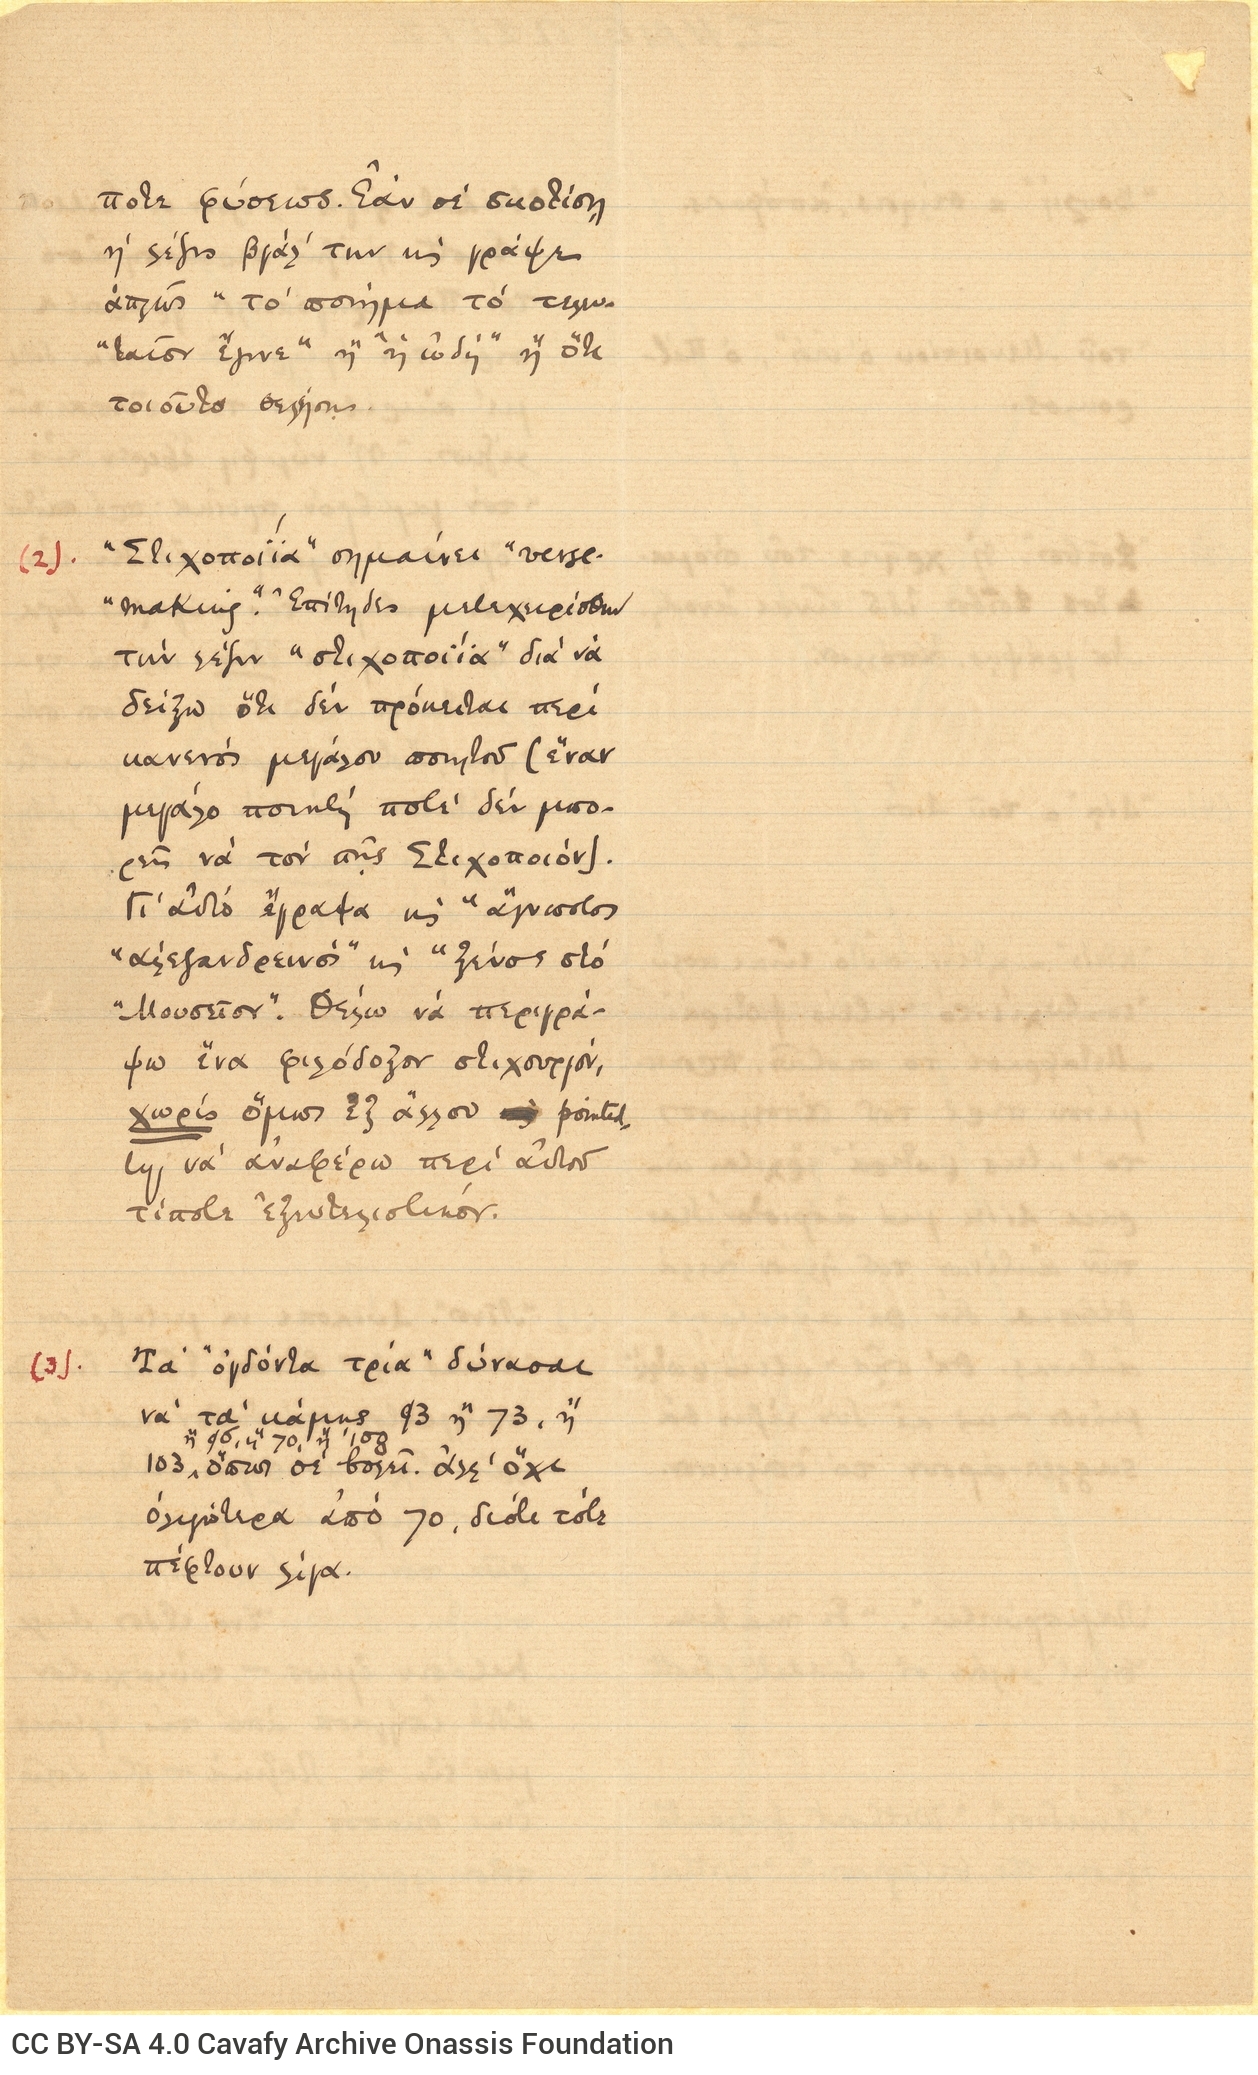 ποτε φύσεως. Ἐάν σέ σκοτίσῃ
ἡ λέξις βγάλ' την κὶ γράψε
ἁπλῶς "τό ποίημα τό τελευ-
"ταῖον ἔγινε" ἤ "ἡ ὠδή" ἤ ὅτι
τοιοῦτο θελήσῃς.
(2). "Στιχοποιΐα" σημαίνει "verse-
"making". Ἐπίτηδες μετεχειρίσθην
τήν λέξιν "στιχοποιΐα" διά νά
δείξω ὅτι δέν πρόκειται περί
κανενός μεγάλου ποιητοῦ (ἕναν
μεγάλο ποιητή ποτέ δέν μπο-
ρεῖ νά τόν πῇς Στιχοποιόν).
Γι' αὐτό ἔγραψα κὶ "ἄγνωστος
"ἀλεξανδρεινός" κὶ "ξένος στό
"Μουσεῖον". Θέλω νά περιγρά-
ψω ἕνα φιλόδοξον στιχουργόν,
χωρίς ὅμως ἐξ ἄλλου pointed-
ly, νά ἀναφέρω περί αὐτοῦ
τίποτε ἐξευτελιστικόν.
(3). Τά "ὀγδόντα τρία" δύνασαι
νά τά κάμῃς 93 ἤ 73, ἤ
ἤ 90, ἤ 70, ἤ 108
103, ὅπως σέ βολεῖ. Ἀλλ' ὄχι
ὀλιγώτερα ἀπό 70, διότι τότε
πέφτουν λίγα.
CC BY-SA 4.0 Cavafy Archive Onassis Foundation